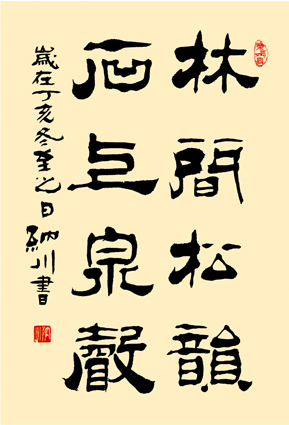 林間松韻
石上泉聲
歲在丁亥冬至之日納川書